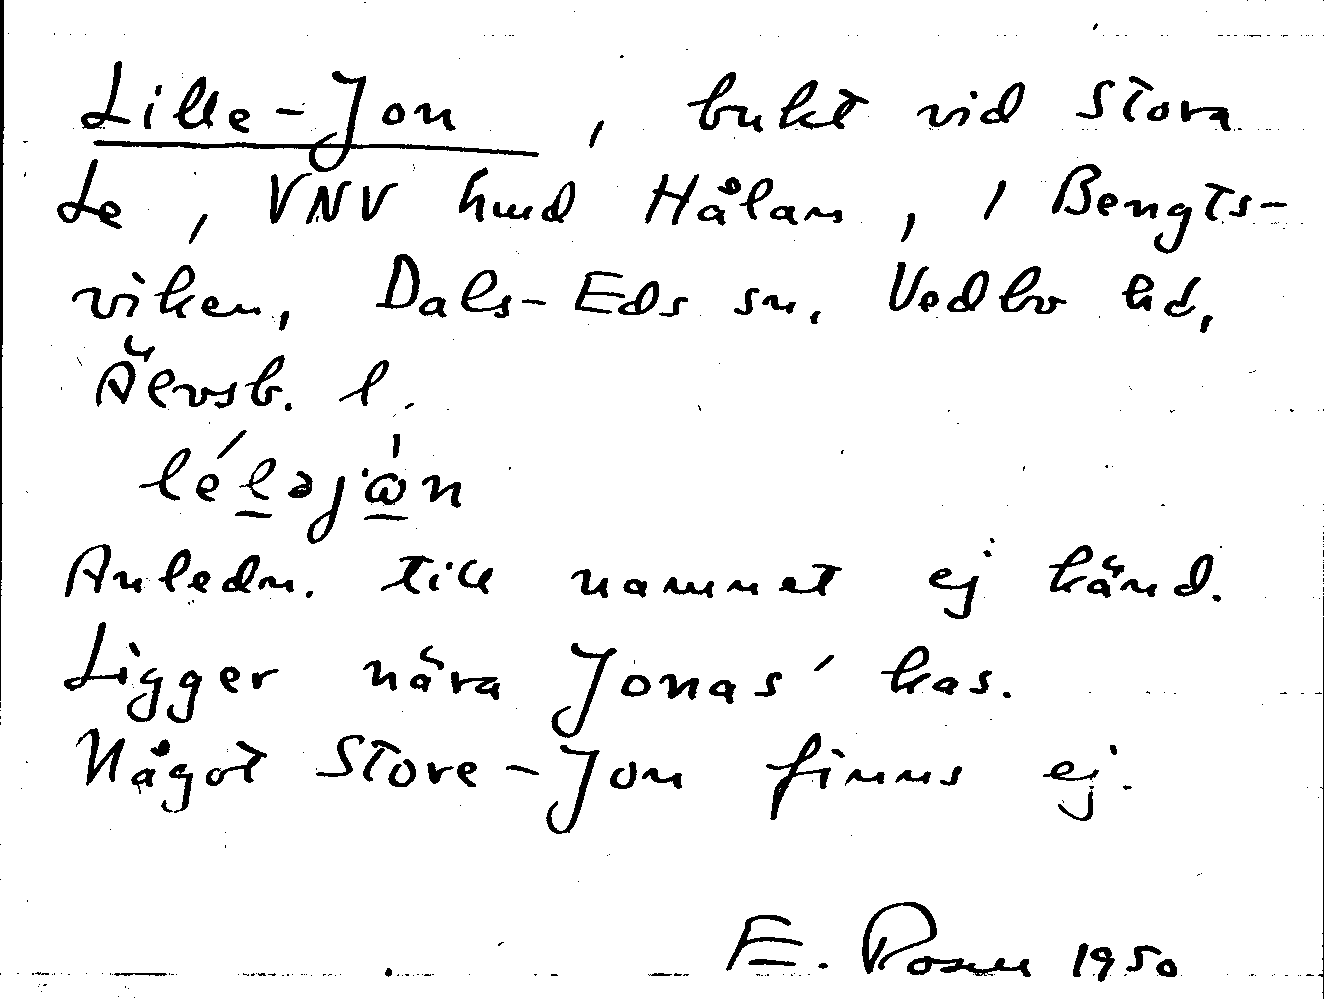 Lille-Jon, bukt vid Stora
Le, VNV hmd Hålan, i Bengts-
viken, Dals-Eds sn, Vedbo hd,
Älvsb. l.
léləjòn
Anledn. till namnet ej känd.
Ligger nära Jonas' kas.
Något Store-Jon finns ej.
E. Rosell 1950